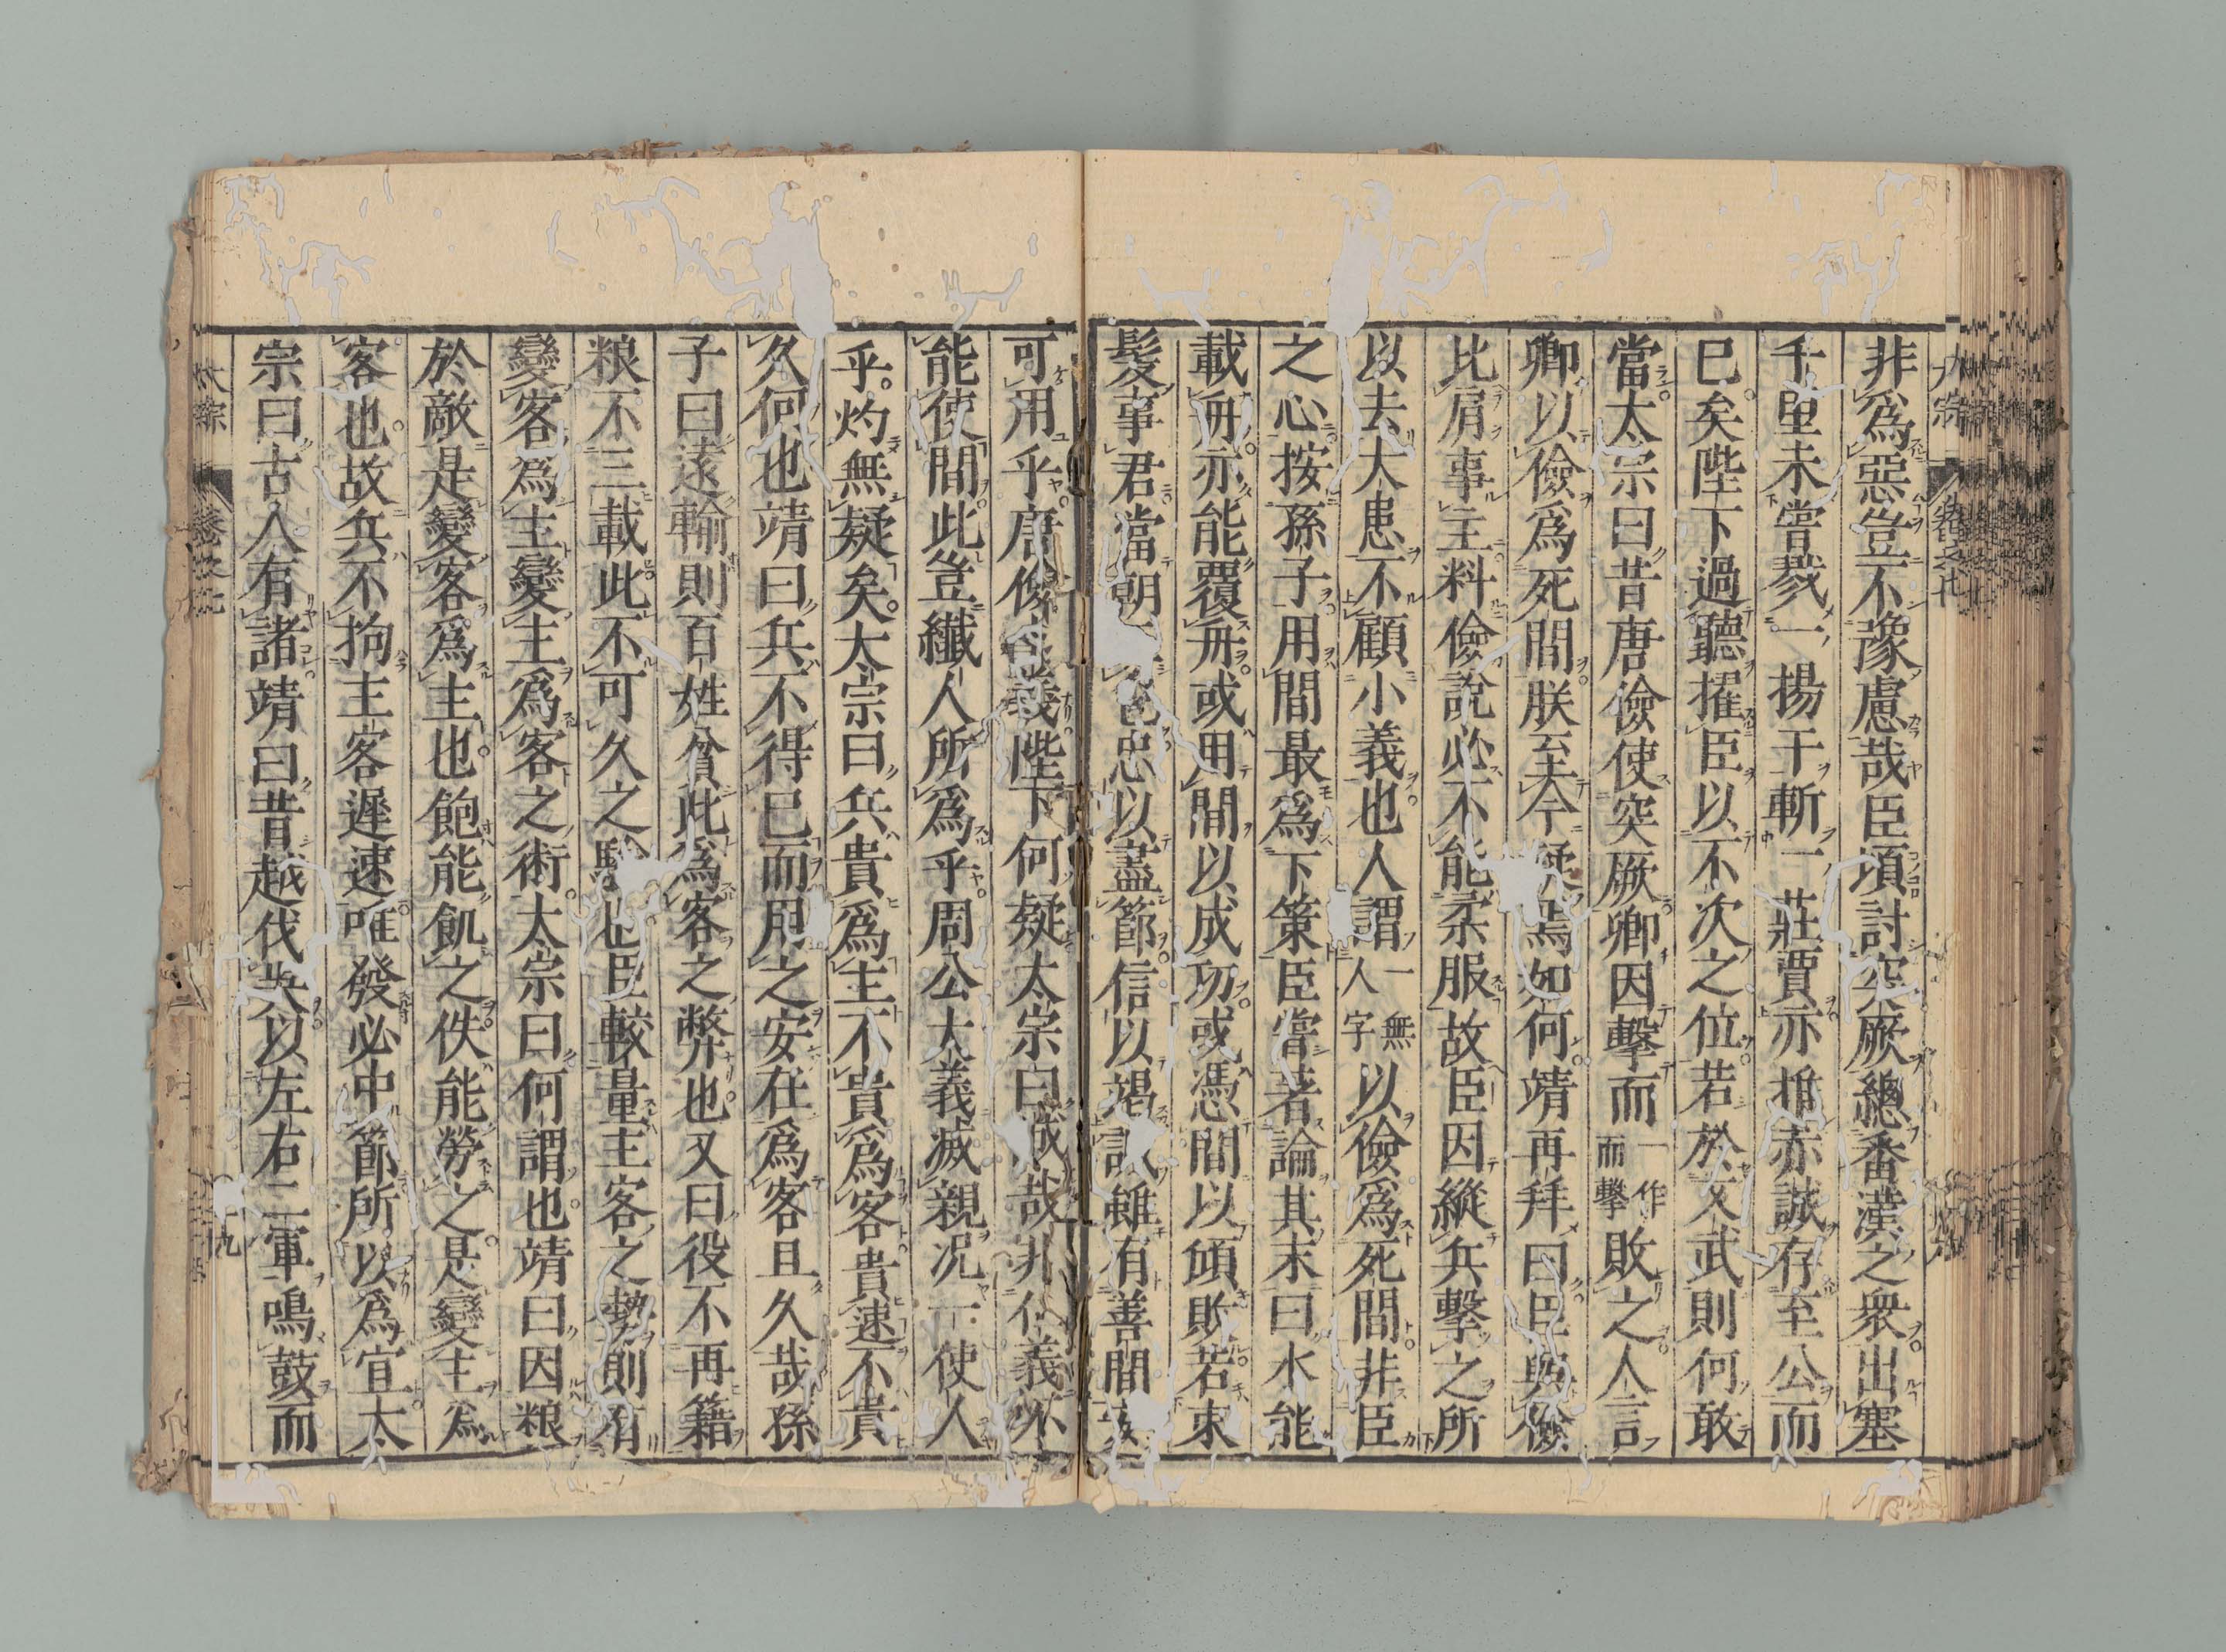 非爲惡豈不豫慮哉臣頃討突厥總番漢之衆出塞
千里未嘗戮一揚干斬一莊賈亦推赤誠存至公而
已矣陛下過聽擢臣以不次之位若於文武則何敢
當太宗曰昔唐儉使突厥卿因擊而一作而擊敗之人言
卿以儉爲死間朕至今疑焉如何靖再拜曰臣與儉
比肩事主料儉說必不能柔服故臣因縱兵擊之所
以去大患不顧小義也人謂一無人字以儉爲死間非臣
之心按孫子用間最爲下策臣嘗著論其末曰水能
載舟亦能覆舟或用間以成功或憑間以傾敗若束
髮事君當朝色忠以盡節信以竭誠雖有善間安
可用乎唐儉小義陛下何疑太宗曰誠哉非仁義不
能使間此豈纖人所爲乎周公大義滅親況一使人
乎灼無疑矣太宗曰兵貴爲主不貴爲客貴速不貴
久何也靖曰兵不得已而用之安在爲客且久哉孫
子曰遠輸則百姓貧此爲客之弊也又曰役不再籍
粮不三載此不可久之驗也臣較量主客之勢則有
變客爲主變主爲客之術太宗曰何謂也靖曰因粮
於敵是變客爲主也飽能飢之佚能勞之是變主爲
客也故兵不拘主客遲速唯發必中節所以爲宜太
宗曰古人有諸靖曰昔越伐吳以左右二軍鳴鼓而
太宗
卷之七
十九